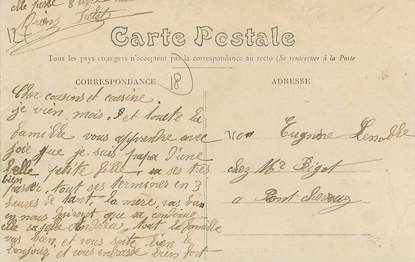 elle pesse 8
12
Carte Postale
Tous les pays étrangers n'acceptent pas la correspondance au recto (Se renseigner à la Poste
CORRESPONDANCE
18
ADRESSE
Cher cousins et cousine
je vien mois, et toute la
famille vous apprendre avec
joie que je suis papa d'une
belle petite fille sa ses très
bien passer, tout ses terminer en 3
heures de tant, la mère, vas bien
en nous desiront que sa continue
elle sapelle Andréa, tout la famille
vas bien, et vous souete bien le
bonjour et vous embrasse bien fort
von Eugnine
chez Mr Bigot
a Pont